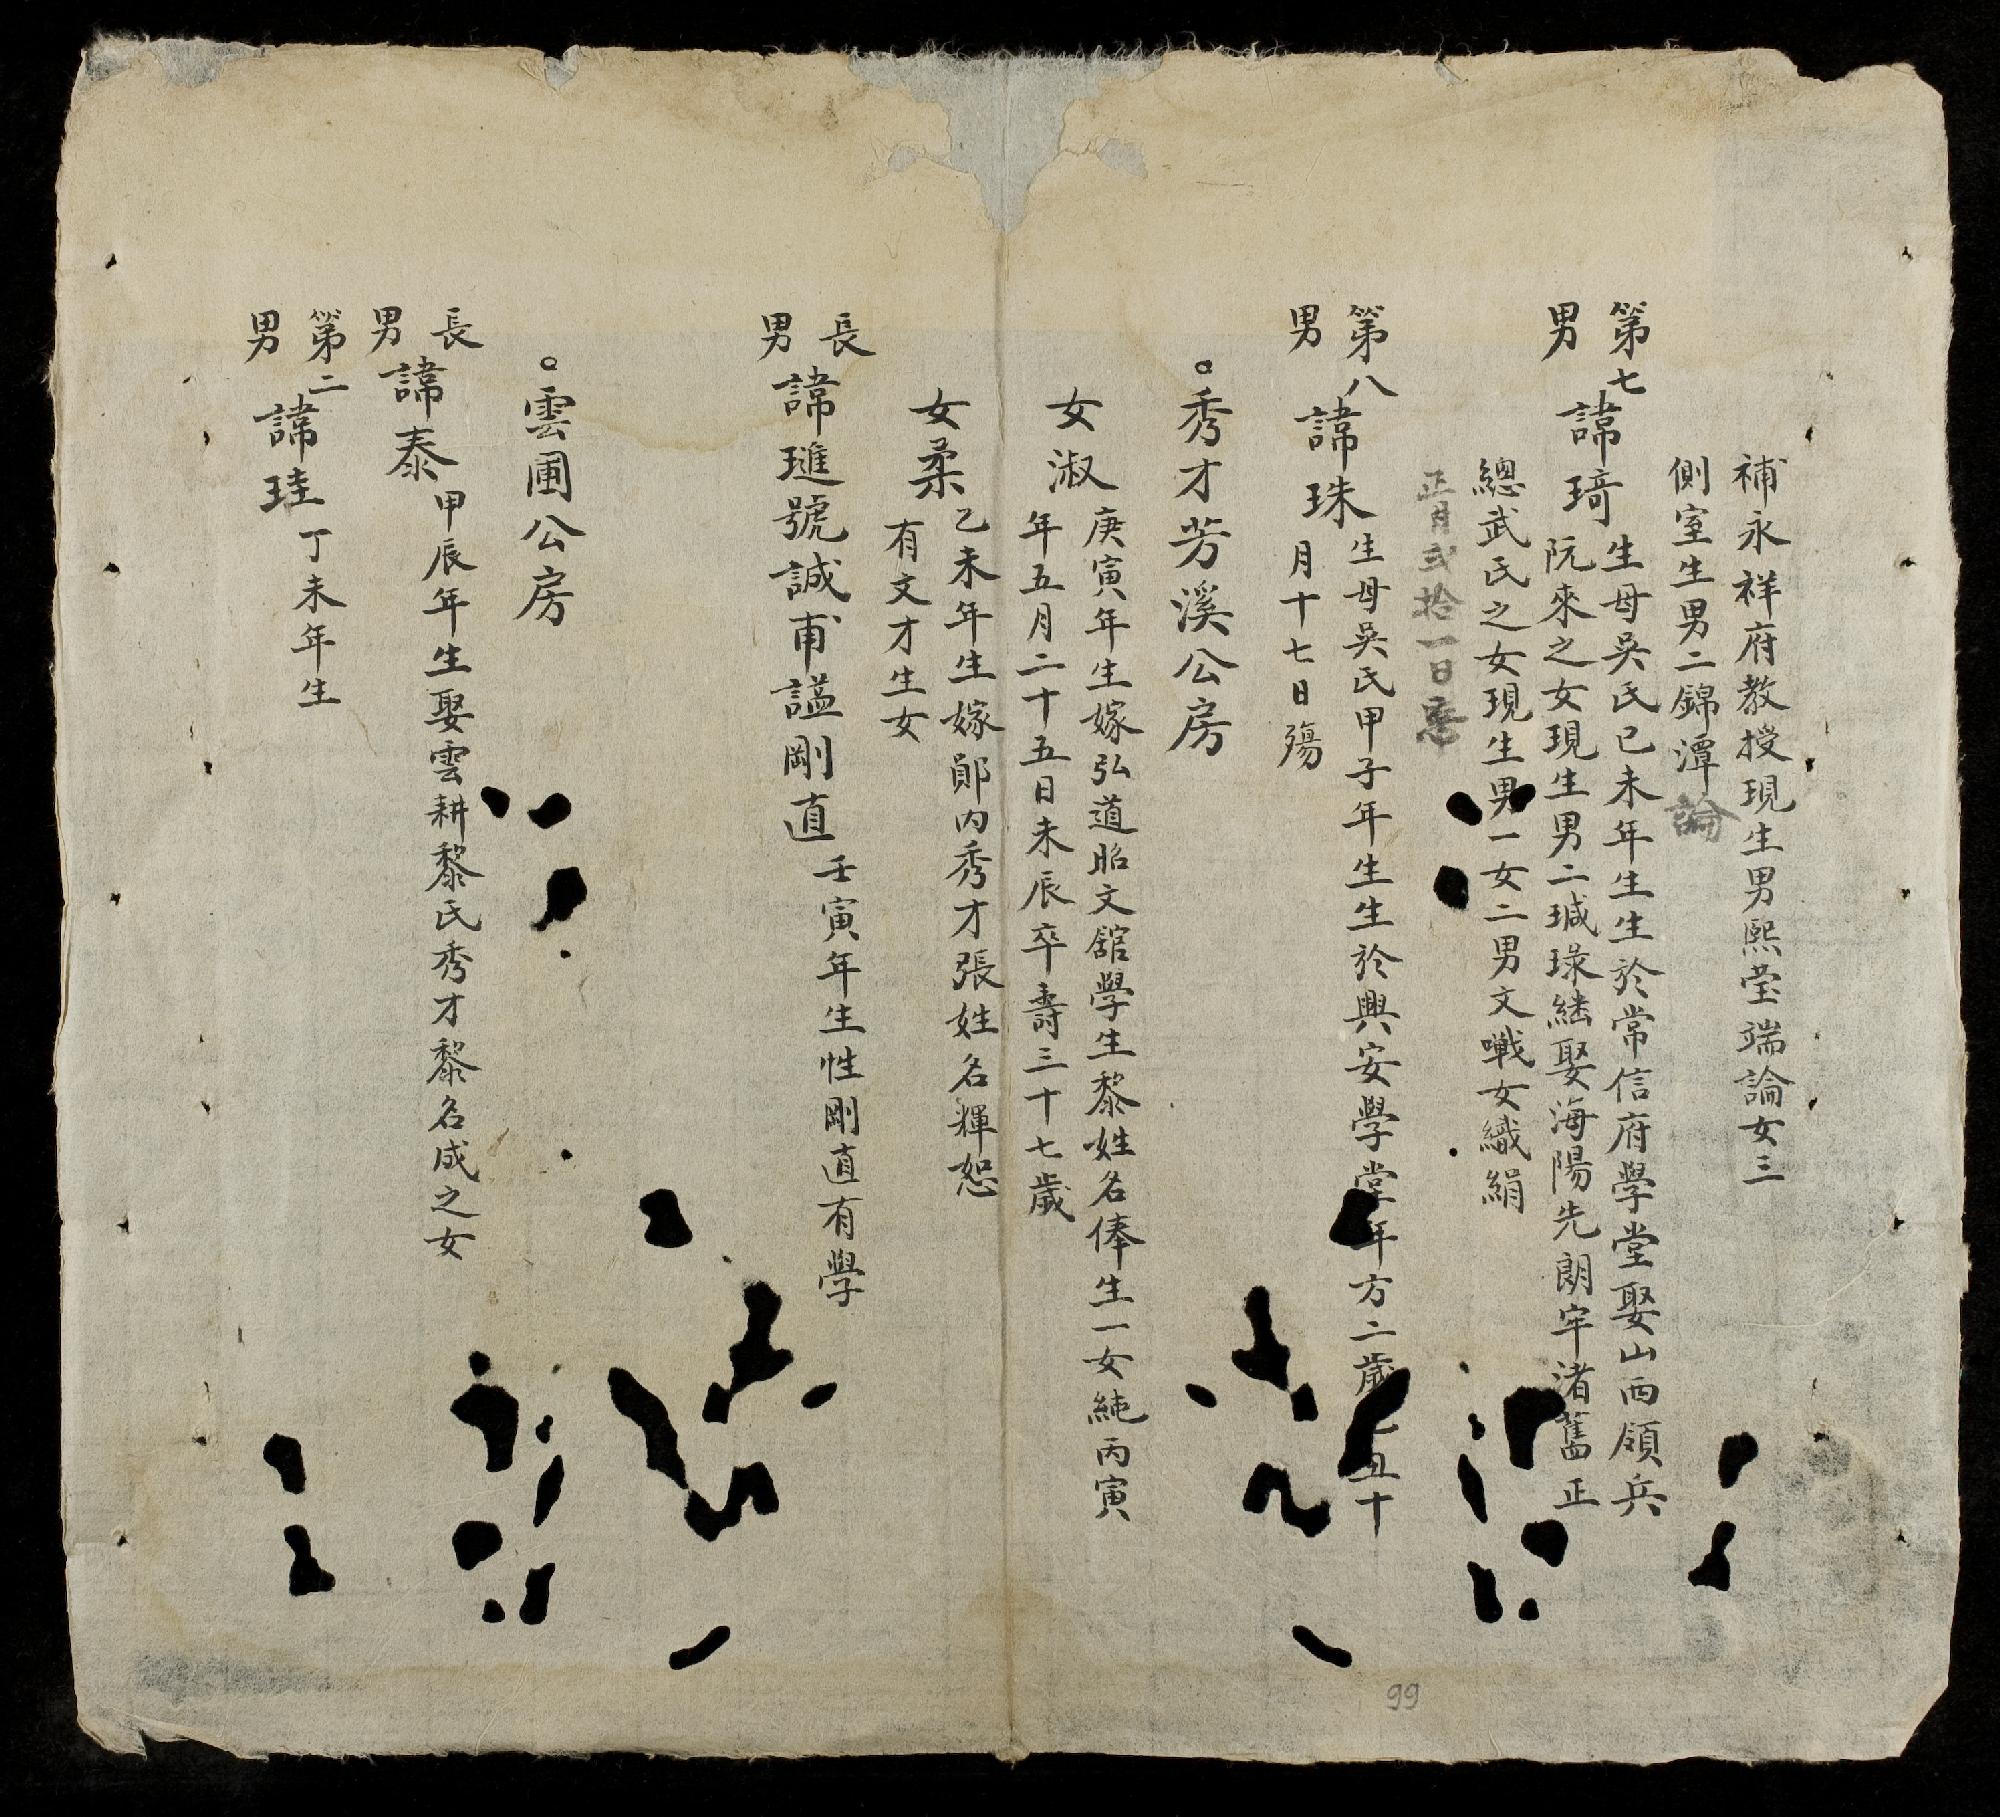 補永祥府教授現生男熙瑩端論女三
側室生男二錦潭論
第七男諱琦生母吳氏已未年生生於常信府學堂娶山西領兵
阮來之女現生男二瑊琭継娶海陽先朗牢渚舊正
總武氏之女現生男一女二男文戰女織絹
正月弍拾一日忌
第八男諱珠生母吳氏甲子年生生於興安學堂年方二歲乙丑十
月十七日殤
。秀才芳溪公房
女淑庚寅年生嫁弘道昭文舘學生黎姓名俸生一女純丙寅
年五月二十五日未辰卒壽三十七歲
女柔乙未年生嫁鄖內秀才張姓名輝恕
有文才生女
長男諱璡號誠甫謚剛直壬寅年生性剛直有學
。雲圃公房
長男諱泰甲辰年生娶雲耕黎氏秀才黎名成之女
第二男諱珪丁未年生
99